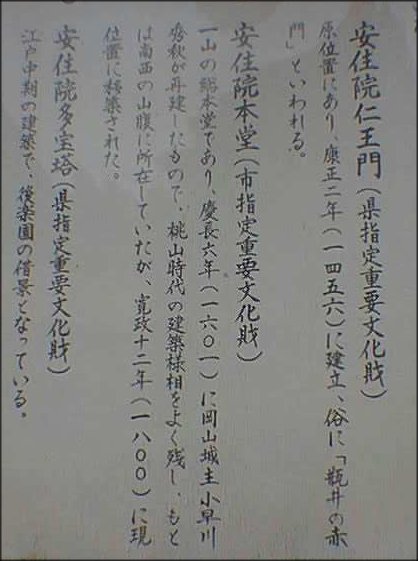 安住院仁王門(県指定重要文化財)
原位置にあり、康正二年(一四五六)に建立、俗に「瓶井の赤
門」といわれる。
安住院本堂(市指定重要文化財)
一山の総本堂であり、慶長六年(一六〇一)に岡山城主小早川
秀秋が再建したもので、桃山時代の建築様相をよく残し、もと
は南西の山腹に所在していたが、寛政十二年(一八〇〇)に現
位置に移築された。
安住院多宝塔(県指定重要文化財)
江戸中期の建築で、後楽園の借景となっている。